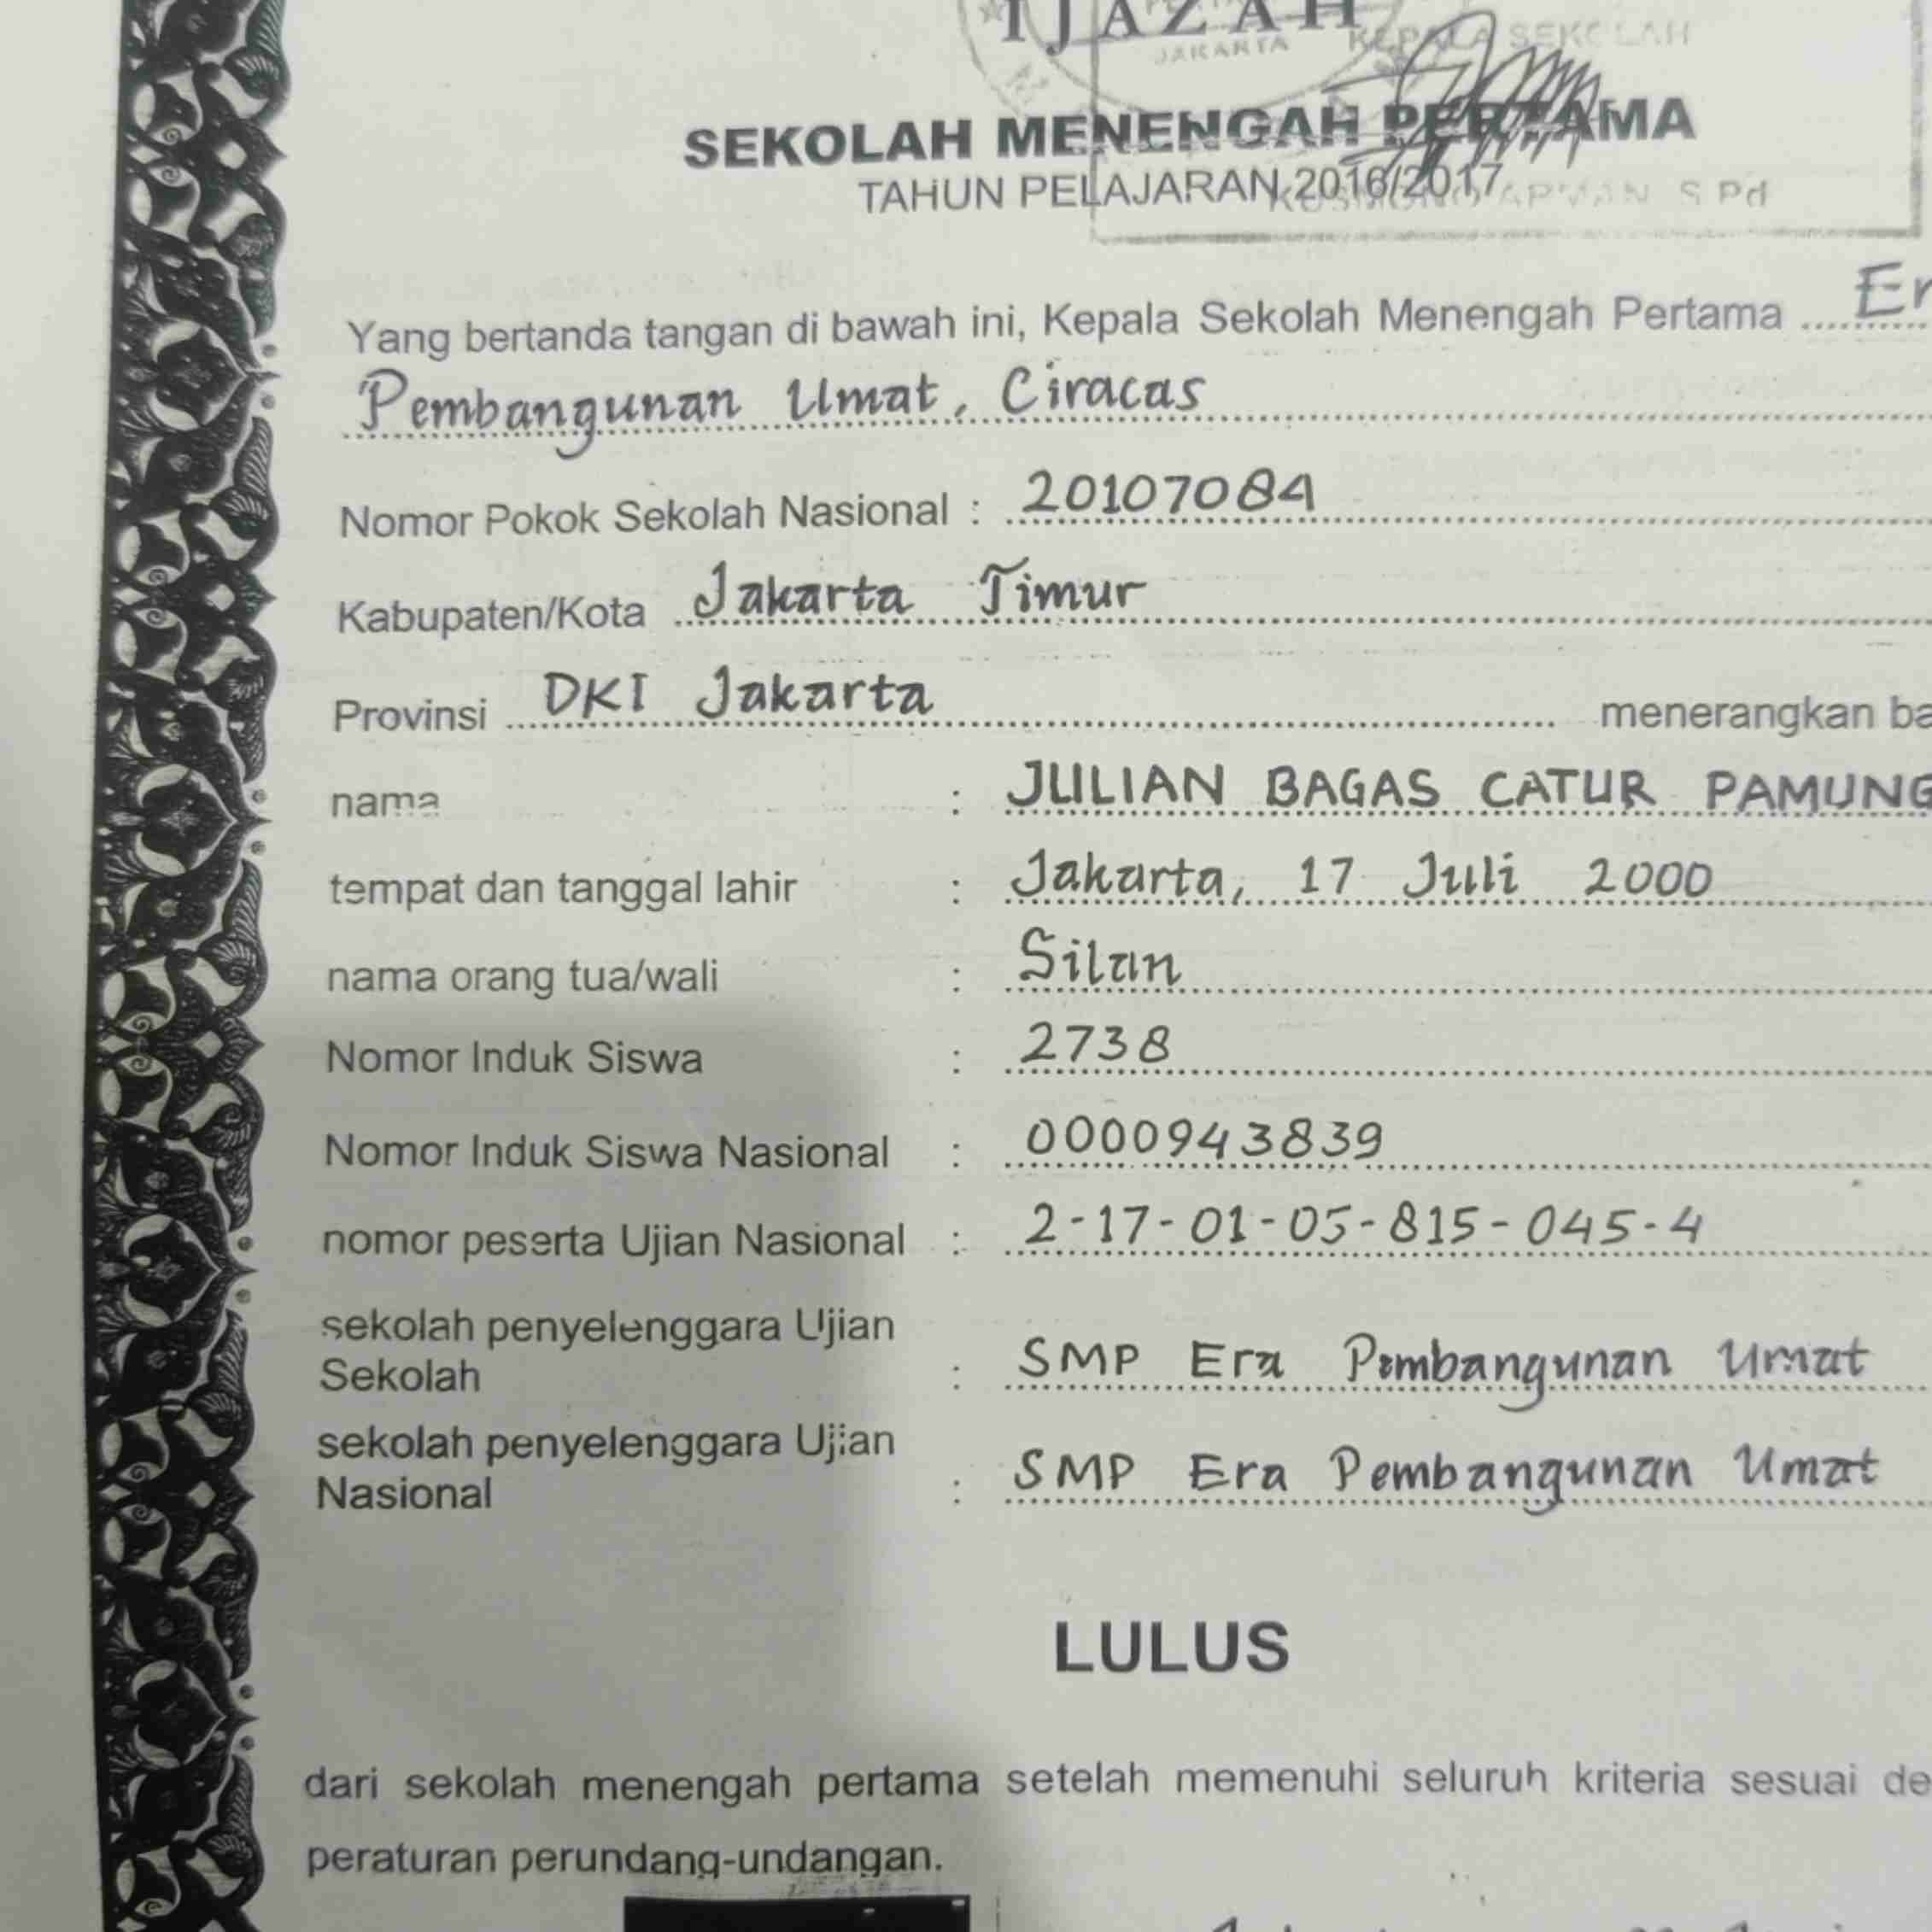 IJAZAH
JAKARTA
KEPALA SEKOLAH
SEKOLAH MENENGAH PERTAMA
TAHUN PELAJARAN 2016/2017
S.Pd
Yang bertanda tangan di bawah ini, Kepala Sekolah Menengah Pertama Er
Pembangunan Umat, Ciracas
Nomor Pokok Sekolah Nasional : 20107084
Kabupaten/Kota Jakarta Timur
Provinsi DKI Jakarta menerangkan ba
nama : JULIAN BAGAS CATUR PAMUNG
tempat dan tanggal lahir : Jakarta, 17 Juli 2000
nama orang tua/wali : Silan
Nomor Induk Siswa : 2738
Nomor Induk Siswa Nasional : 0000943839
nomor peserta Ujian Nasional : 2-17-01-05-815-045-4
sekolah penyelenggara Ujian
Sekolah : SMP Era Pembangunan Umat
sekolah penyelenggara Ujian
Nasional : SMP Era Pembangunan Umat
LULUS
dari sekolah menengah pertama setelah memenuhi seluruh kriteria sesuai de
peraturan perundang-undangan.